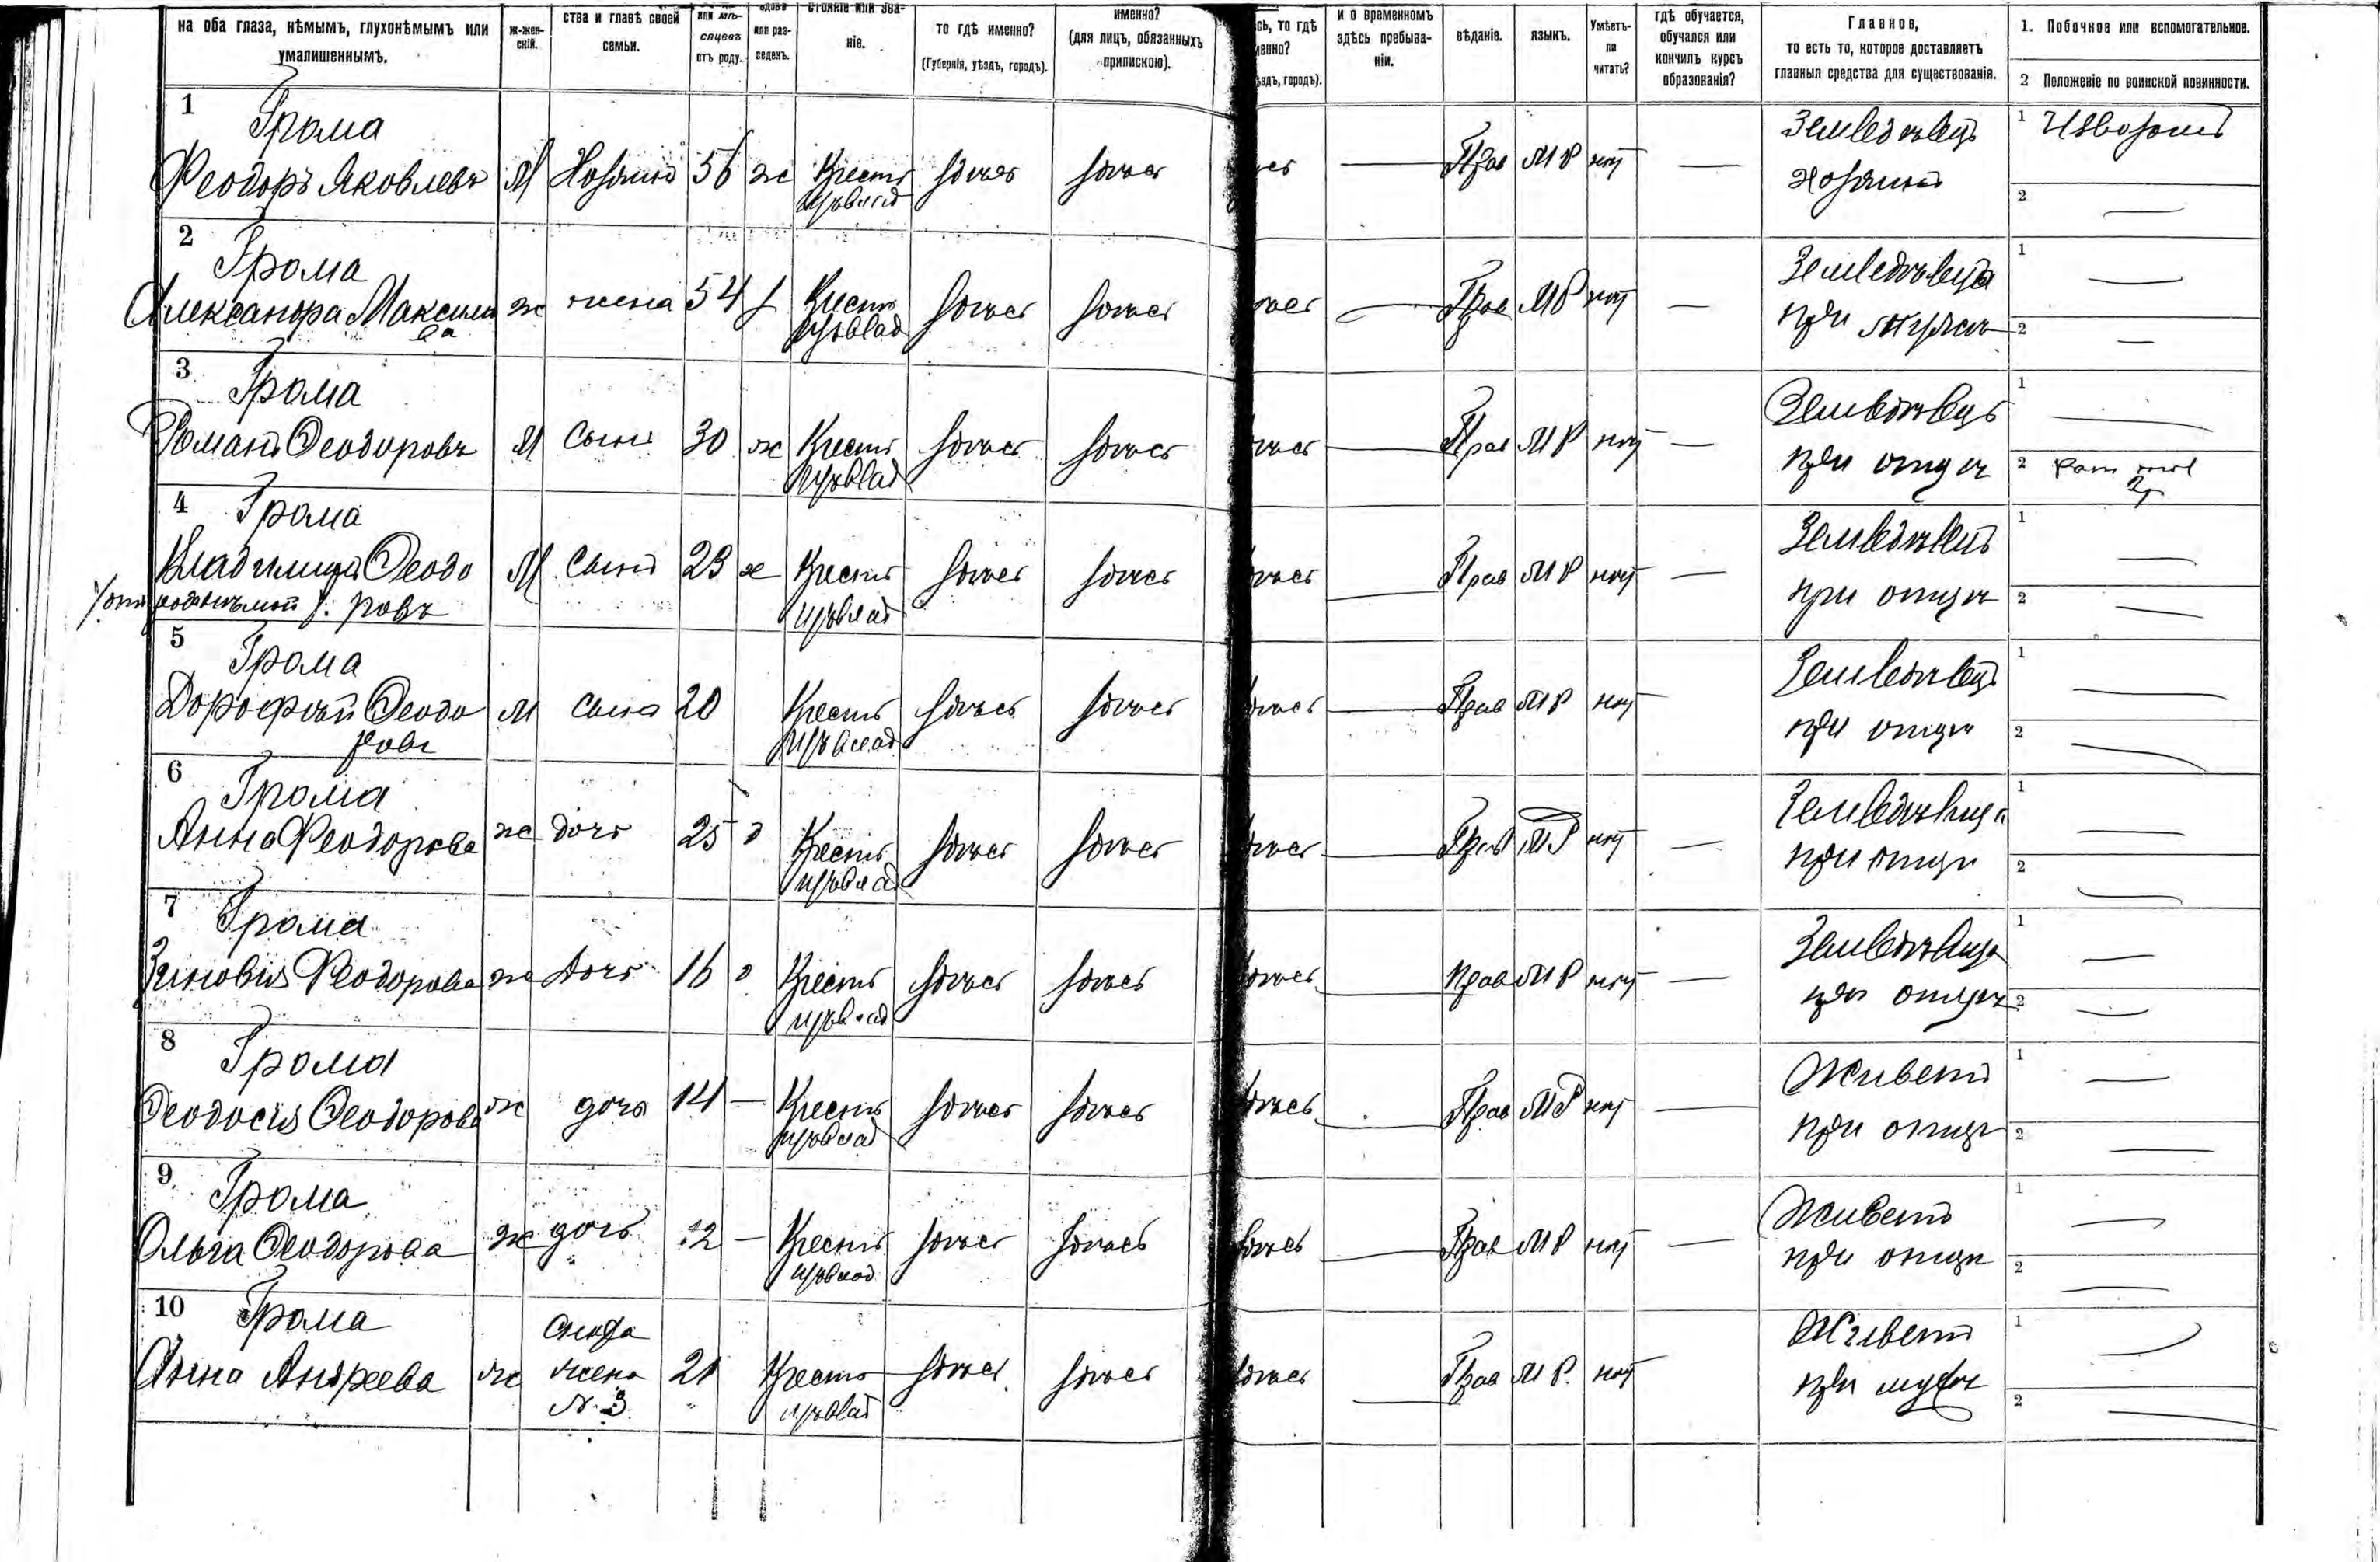 на оба глаза, нѣмымъ, глухонѣмымъ или умалишеннымъ.
ж-жен-скій.
ства и главѣ своей семьи.
или мѣ-сяцевъ отъ роду.
или раз-веденъ.
стояніе или зва-ніе.
то гдѣ именно? (Губернія, уѣздъ, городъ).
именно? (для лицъ, обязанныхъ припискою).
сь, то гдѣ
ѣздъ, городъ).
и о временномъ здѣсь пребыва-ніи.
вѣданіе.
языкъ.
Умѣетъ-ли читать?
гдѣ обучается, обучался или кончилъ курсъ образованія?
Главное, то есть то, которое доставляетъ главныя средства для существованія.
1. Побочное или вспомогательное.
2 Положеніе по воинской повинности.
1 Грома
Феодоръ Яковлевъ М Хозяинъ 56 ж Крестъ здѣсь здѣсь
— Прав МР нѣт — Земледѣлецъ хозяинъ
1 Извозъ
2 —
2 Грома
Александра Максимова ж жена 54 Крестъ здѣсь здѣсь
здѣсь — Прав МР нѣт — Земледѣлица при мужѣ
1 —
2 —
3 Грома
Романъ Феодоровъ М Сынъ 30 ж Крестъ здѣсь здѣсь
здѣсь — Прав МР нѣт — Земледѣлецъ при отцѣ
1 —
2
4 Грома
Владимиръ Феодоровъ М Сынъ 23 Крестъ здѣсь здѣсь
здѣсь — Прав МР нѣт — Земледѣлецъ при отцѣ
1 —
2 —
5 Грома
Дорофѣй Феодоровъ М Сынъ 20 Крестъ здѣсь здѣсь
здѣсь — Прав МР нѣт — Земледѣлецъ при отцѣ
1 —
2 —
6 Грома
Анна Феодорова ж дочь 25 д Крестъ здѣсь здѣсь
здѣсь — Прав МР нѣт — Земледѣлица при отцѣ
1 —
2 —
7 Грома
Зиновія Феодорова ж Дочь 16 д Крестъ здѣсь здѣсь
здѣсь — Прав МР нѣт — Земледѣлица при отцѣ
1 —
2 —
8 Грома
Феодосія Феодорова ж дочь 14 — Крестъ здѣсь здѣсь
здѣсь — Прав МР нѣт — Живетъ при отцѣ
1 —
2 —
9 Грома
Ольга Феодорова ж дочь 12 — Крестъ здѣсь здѣсь
здѣсь — Прав МР нѣт — Живетъ при отцѣ
1 —
2 —
10 Грома
Анна Андреева ж жена N. 3 21 Крестъ здѣсь здѣсь
здѣсь — Прав МР. нѣт Живетъ при мужѣ
1 —
2 —